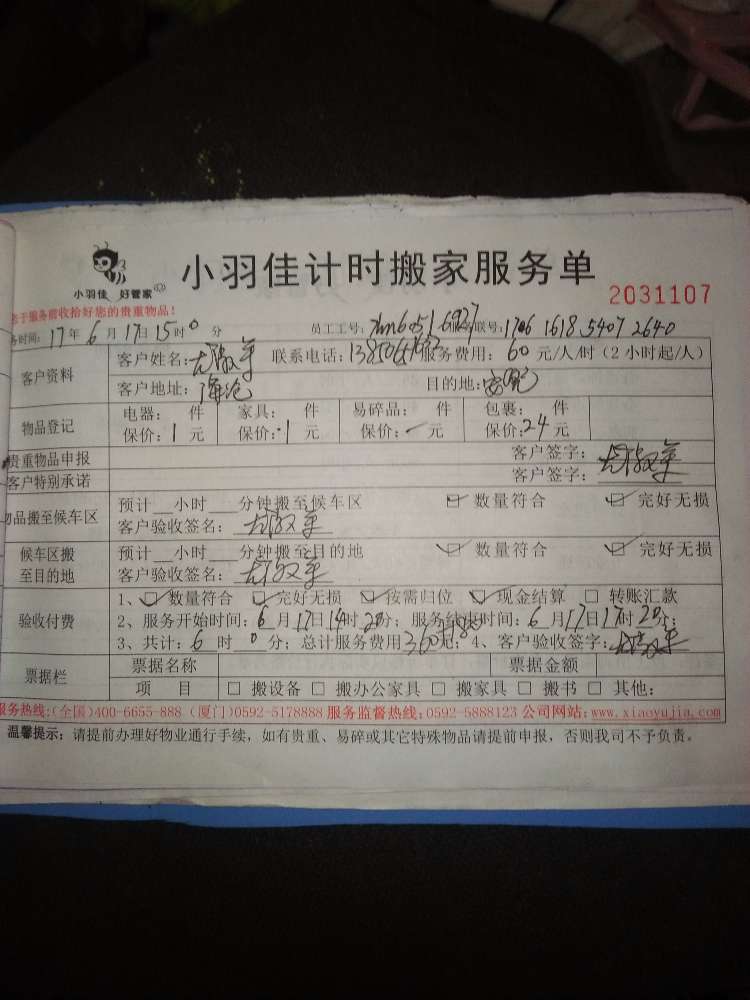 小羽佳 好管家
小羽佳计时搬家服务单
2031107
于服务前收拾好您的贵重物品！
务时间：17年6月17日15时0分 员工工号： 联号：1706 1618 5407 2640
客户资料 客户姓名： 联系电话： 服务费用：60元/人/时（2小时起/人）
客户地址：海沧 目的地：
物品登记 电器： 件 家具： 件 易碎品： 件 包裹： 件
保价：1元 保价：1元 保价：一元 保价：24元
贵重物品申报 客户签字：
客户特别承诺 客户签字：
物品搬至候车区 预计__小时__分钟搬至候车区 ☑数量符合 ☑完好无损
客户验收签名：
候车区搬至目的地 预计__小时__分钟搬至目的地 ☑数量符合 ☑完好无损
客户验收签名：
验收付费 1、☑数量符合 ☑完好无损 ☑按需归位 ☑现金结算 □转账汇款
2、服务开始时间：6月17日14时20分；服务结束时间：6月17日17时20分；
3、共计：6时0分；总计服务费用360元；4、客户验收签字：
票据栏 票据名称 票据金额
项 目 □搬设备 □搬办公家具 □搬家具 □搬书 □其他：
服务热线：(全国)400-6655-888 (厦门)0592-5178888 服务监督热线：0592-5888123 公司网站：www.xiaoyujia.com
温馨提示：请提前办理好物业通行手续，如有贵重、易碎或其它特殊物品请提前申报，否则我司不予负责。